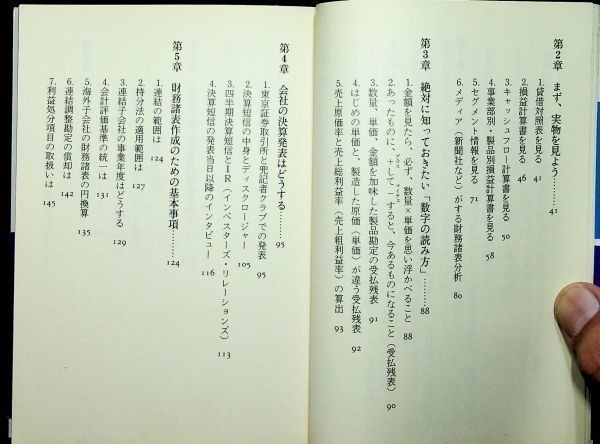 第2章 まず、実物を見よう……… 41
1.貸借対照表を見る 41
2.損益計算書を見る 46
3.キャッシュフロー計算書を見る 50
4.事業部別・製品別損益計算書を見る 58
5.セグメント情報を見る 71
6.メディア（新聞社など）がする財務諸表分析 80
第3章 絶対に知っておきたい「数字の読み方」……… 88
1.金額を見たら、必ず、数量×単価を思い浮かべること 88
2.あったものに、＋して－すると、今あるものになること（受払残表） 90
プラス マイナス
3.数量、単価、金額を加味した製品勘定の受払残表 91
4.はじめの単価と、製造した原価（単価）が違う受払残表 92
5.売上原価率と売上総利益率（売上粗利益率）の算出 93
第4章 会社の決算発表はどうする……… 95
1.東京証券取引所と兜記者クラブでの発表 95
2.決算短信の中身とディスクロージャー 105
3.四半期決算短信とIR（インベスターズ・リレーションズ） 113
4.決算短信の発表当日以降のインタビュー 116
第5章 財務諸表作成のための基本事項……… 124
1.連結の範囲は 124
2.持分法の適用範囲は 127
3.連結子会社の事業年度はどうする 129
4.会計評価基準の統一は 131
5.海外子会社の財務諸表の円換算 135
6.連結調整勘定の償却は 142
7.利益処分項目の取扱いは 145